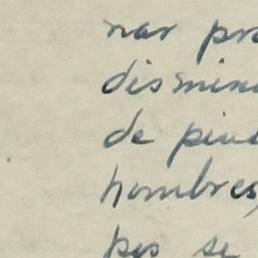 nar pro
dismin
de pied
hombres,
pos se